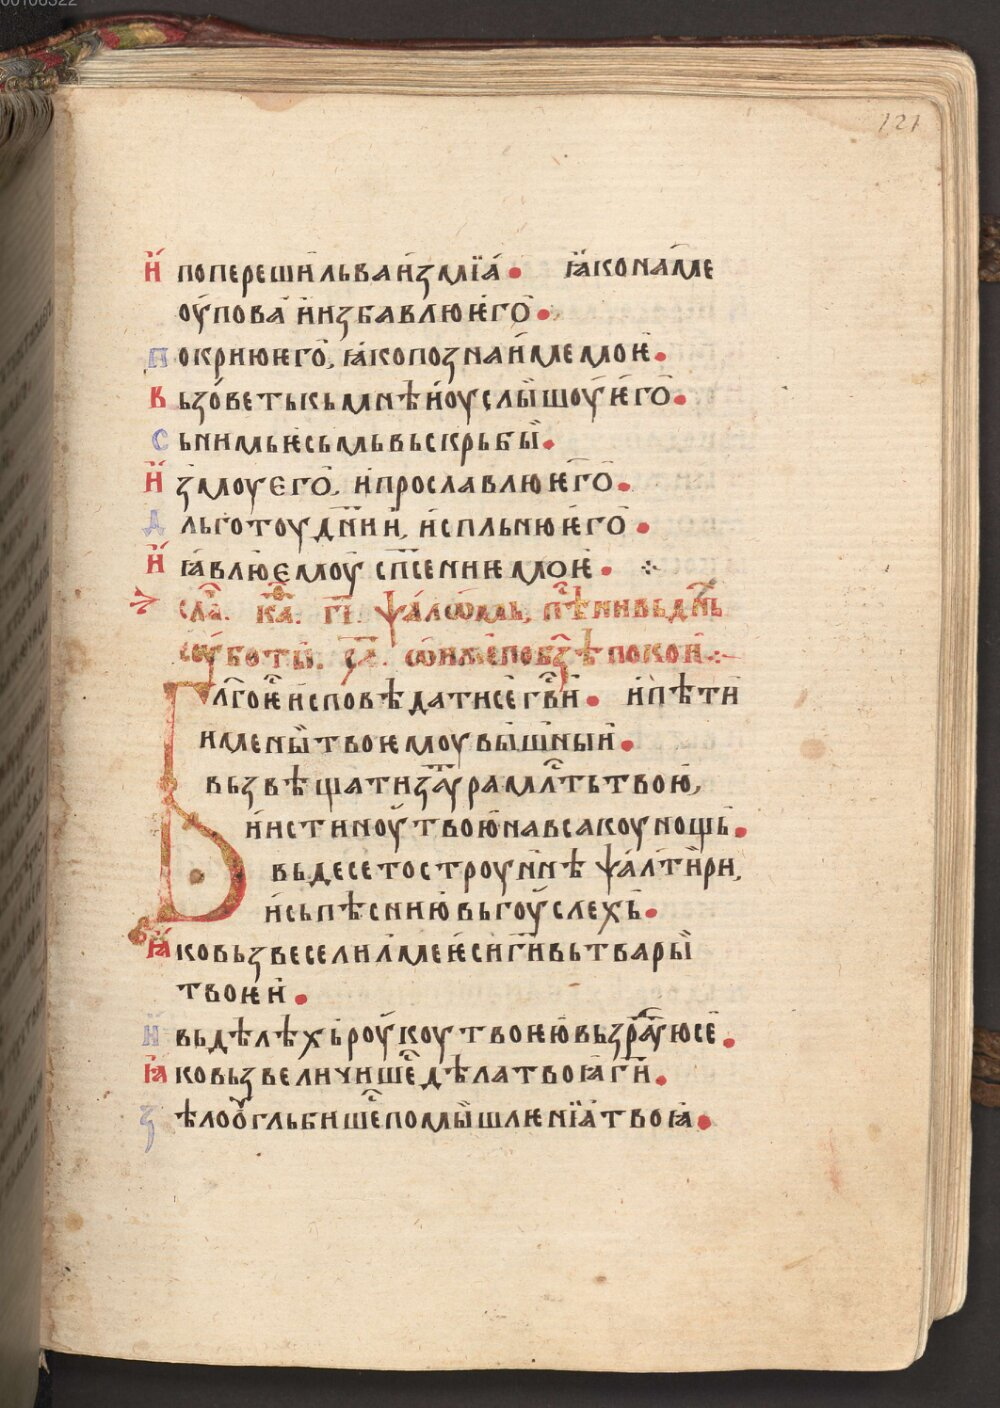 00106322
121
И҆ попереши льва и҆ змїа҆. ꙗ҆ко на́ ме
оу҆пова̀ и҆ и҆збавлю ѥ҆го̀.
покрию ѥго̀, ꙗ҆ко позна и҆ме моѥ̀.
Вьзо́веть кь мнѣ и҆ оуслы̀шоу ѥ҆го̀.
Сь нимь ѥсьмь вь скрьбы̀.
И҆змоу єго̀, и҆ прославлю ѥ҆го̀.
Дльготоу дн҃и и҆, и҆спльню ѥ҆го̀.
И҆ ꙗ҆влю ємоу̀ сп҃сениѥ моѥ̀.
сла̀. ка҃. г҃і. ѱа́лѡмь, пѣ҇ни вь дн҃ь
соу́боты̀. ч҃а. ѡ҆ и҆ме́не повзѣ покои̑
Бл҃го ѥ҆ исповѣдатисе г҃ви̑. и҆ пѣти
имены̀ твоѥмоу вы́шныи̑.
вьзвѣщати заоу̑тра млс҇ть твою̀,
и҆ и҆стиноу̀ твою̀ на всакоу нощь̀.
вь десетостроу́ннѣ ѱа́лти̑ри,
и҆ сь пѣснию̀ вь гоу̑слехь̀.
Ꙗ҆ко вьзвеселил ме ѥ҆си г҃и вь твары̀
твоѥи̑.
И҆ вь дѣлѣхь роу̑коу твоѥю̀ вьзра́дуюсѐ.
Ꙗ҆ко вьзвеличише҇ дѣла твоꙗ г҃и.
Зѣло оу̑гльбише҇ помы̀шлѥнїа҆ твоꙗ̀.